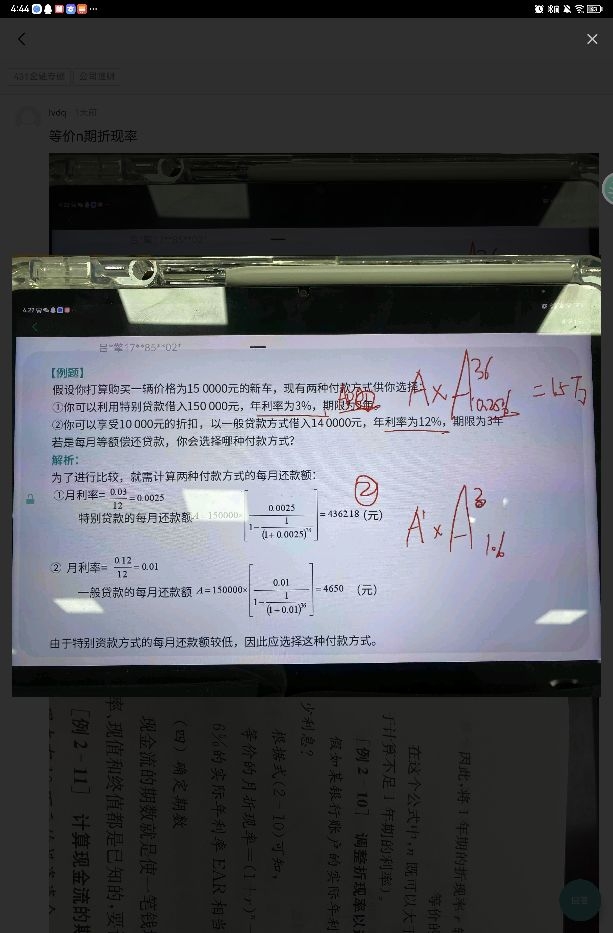 4:44
431金融专硕 公司理财
lvdq 1天前
等价n期折现率
4:27
吕*擎*7**85**02*
【例题】
假设你打算购买一辆价格为15 0000元的新车，现有两种付款方式供你选择：
①你可以利用特别贷款借入150000元，年利率为3%，期限为3年
②你可以享受10 000元的折扣，以一般贷款方式借入14 0000元，年利率为12%，期限为3年
若是每月等额偿还贷款，你会选择哪种付款方式？
解析：
为了进行比较，就需计算两种付款方式的每月还款额：
①月利率= 0.03/12 =0.0025
特别贷款的每月还款额A=150000×[0.0025/(1-1/(1+0.0025)^36)]=436218（元）
② 月利率= 0.12/12 =0.01
一般贷款的每月还款额 A=150000×[0.01/(1-1/(1+0.01)^36)]=4650 （元）
由于特别资款方式的每月还款额较低，因此应选择这种付款方式。
A×A 36 0.25% =15万
②
A'×A 3 1%
因此，将1年期的折现率r转
等价的
在这个公式中，n既可以大于
于计算不足1年期的利率）。
［例2-10］ 调整折现率以
假如某银行账户的实际年利
少利息？
根据式（2-10）可知，
等价的月折现率＝(1+r)ⁿ-
6%的实际年利率EAR相当
（四）确定期数
现金流的期数就是使一笔钱
率、现值和终值都是已知的，要
［例2-11］ 计算现金流的期
回答